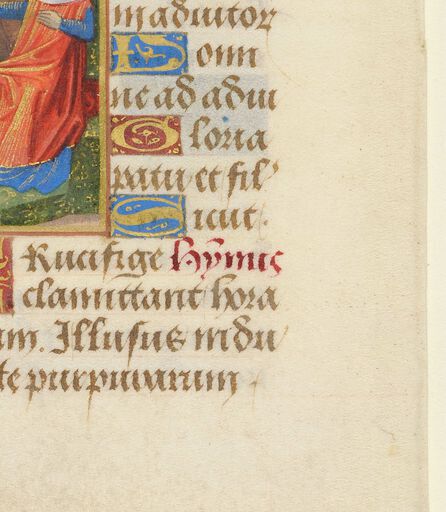 in adiutor
Domi
ne ad adiu
Gloria
patri et fil'
Sicut.
CRucifige hymnus
clamittant hora
am. Illusus indu
te purpuraruim.